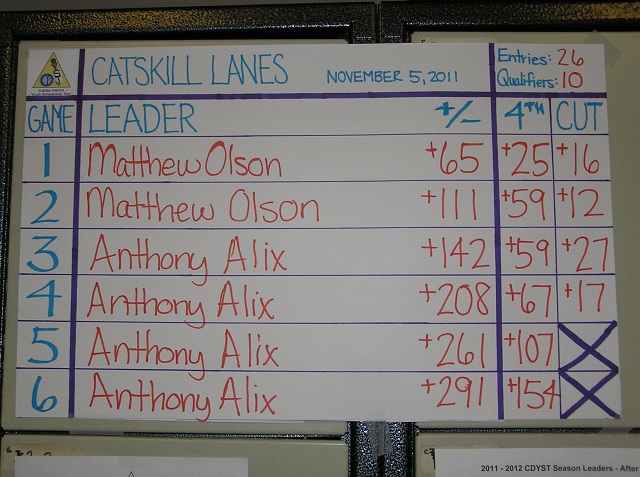 CATSKILL LANES NOVEMBER 5, 2011 Entries: 26
Qualifiers: 10
GAME LEADER +/- 4TH CUT
1 Matthew Olson +65 +25 +16
2 Matthew Olson +111 +59 +12
3 Anthony Alix +142 +59 +27
4 Anthony Alix +208 +67 +17
5 Anthony Alix +261 +107 X
6 Anthony Alix +291 +154 X
2011 - 2012 CDYST Season Leaders - After